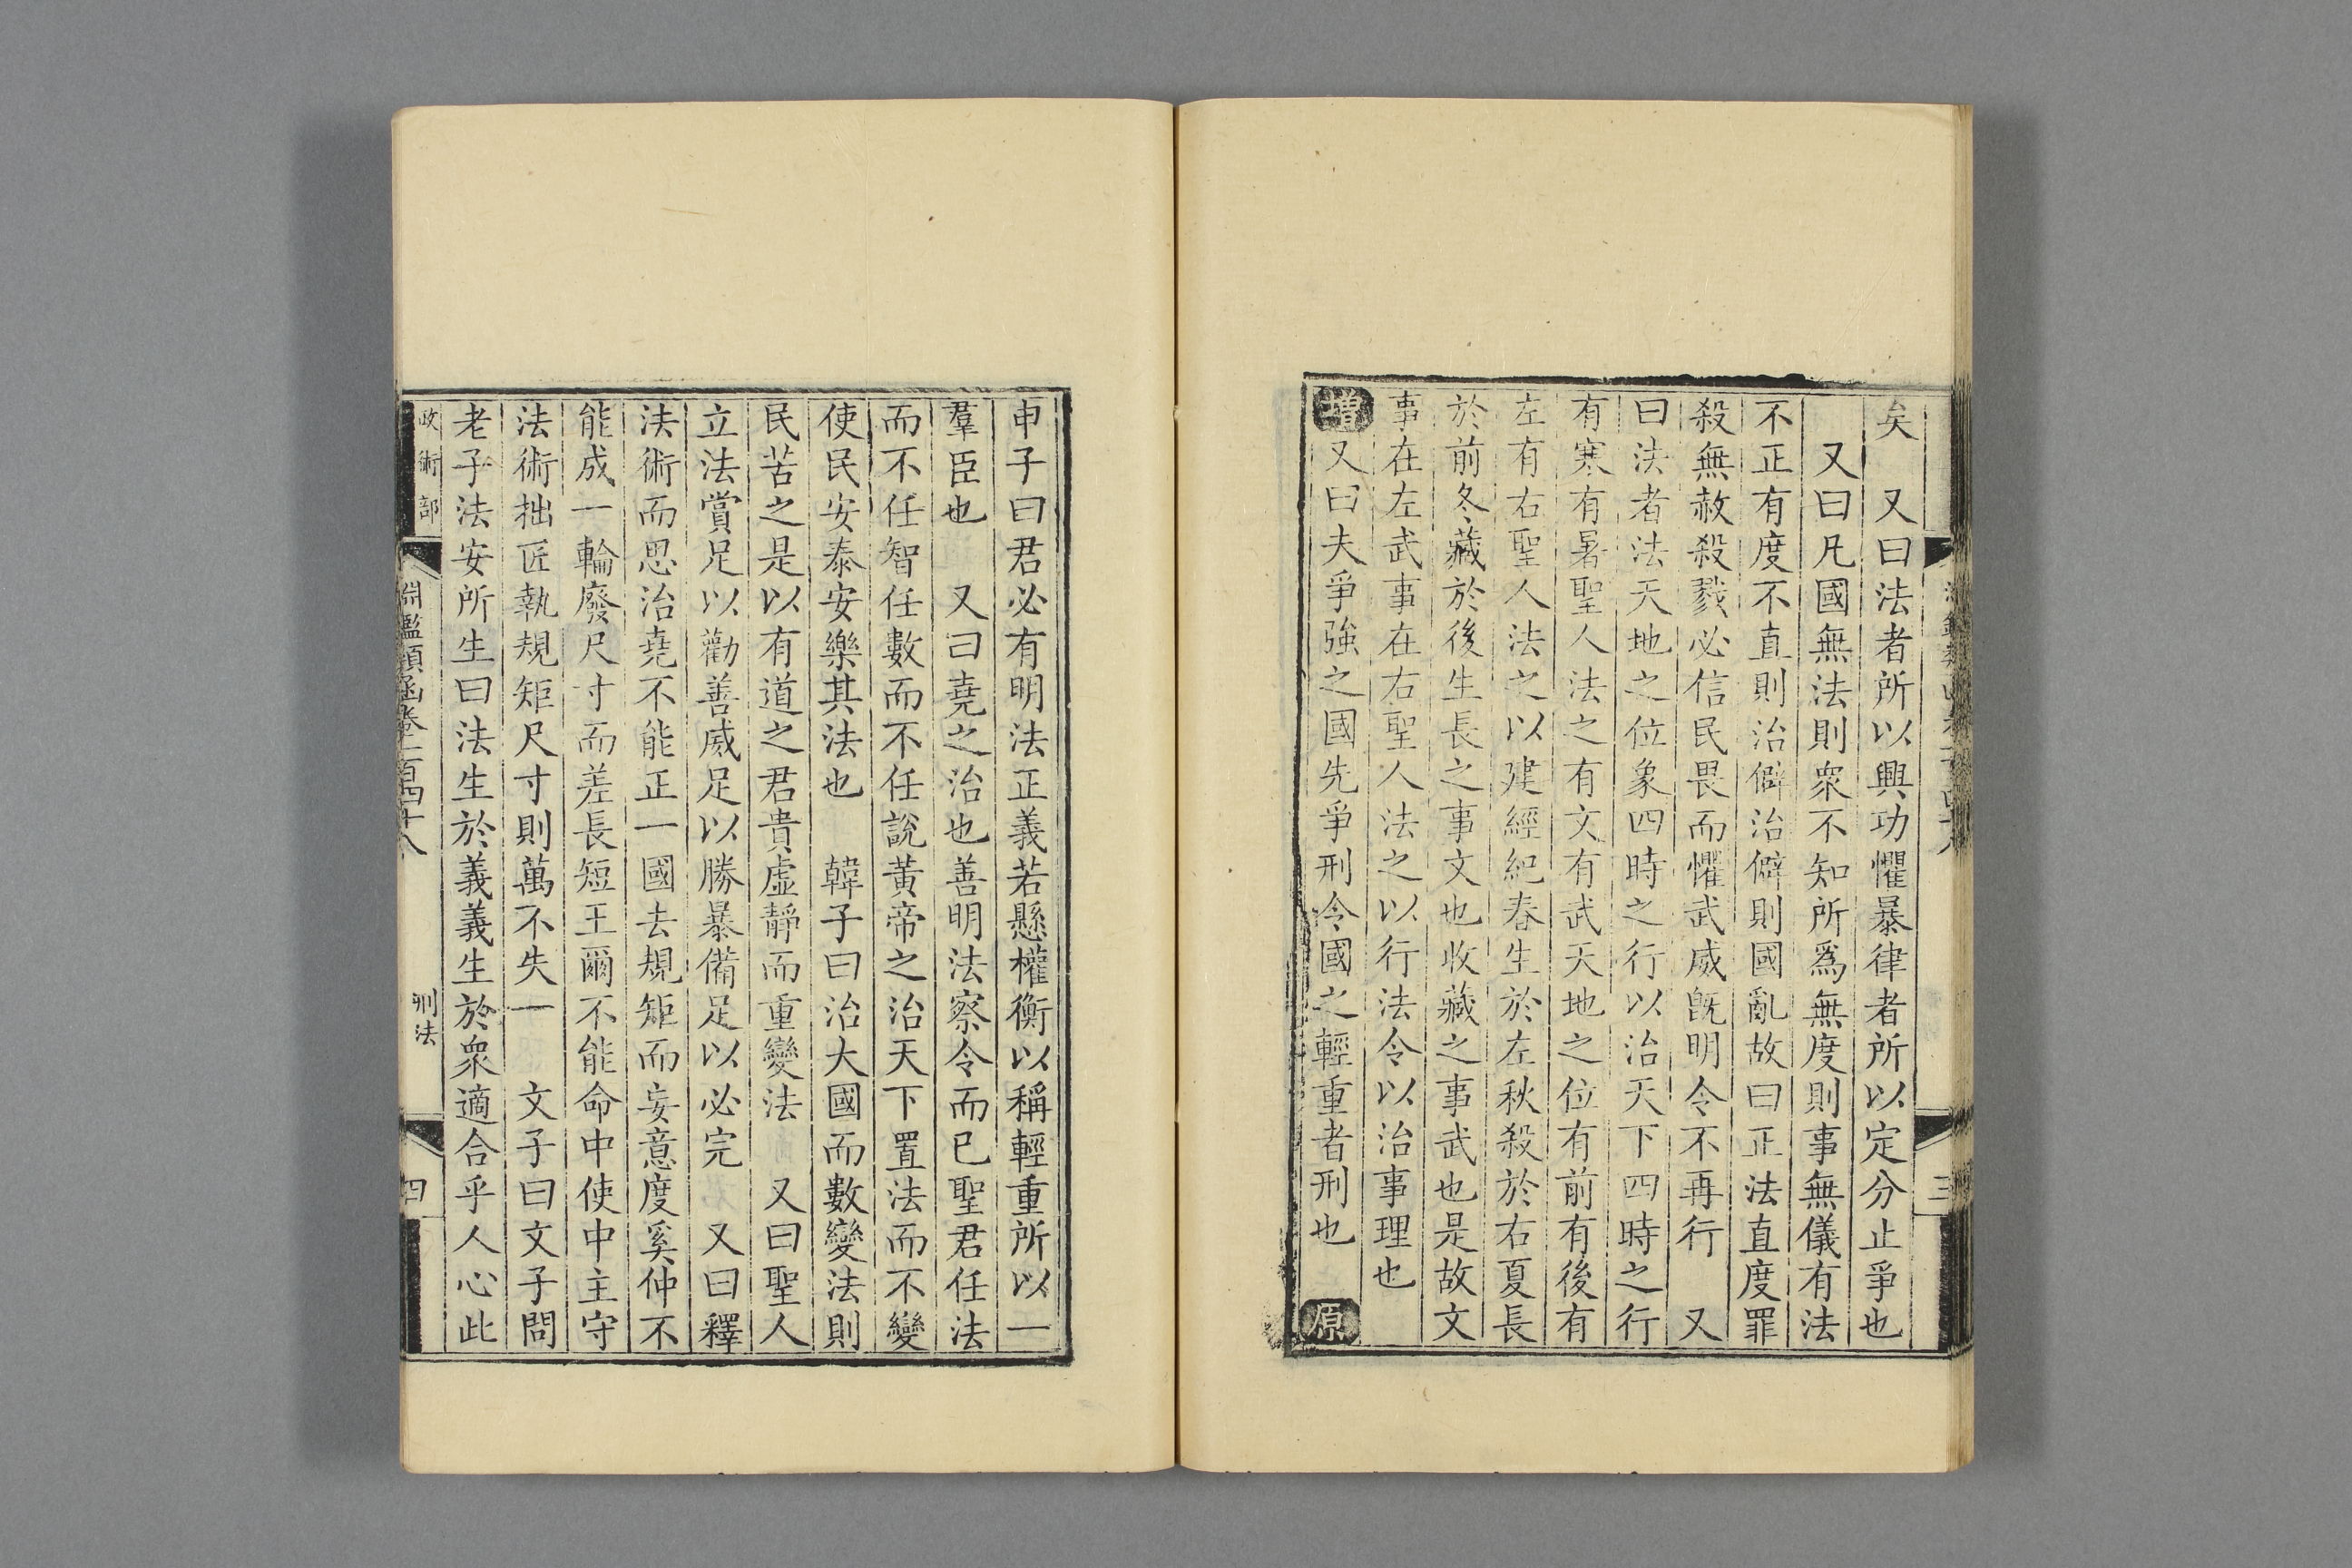 矣　又曰法者所以興功懼暴律者所以定分止爭也
又曰凡國無法則衆不知所爲無度則事無儀有法
不正有度不直則治僻治僻則國亂故曰正法直度罪
殺無赦殺戮必信民畏而懼武威旣明令不再行　又
曰法者法天地之位象四時之行以治天下四時之行
有寒有暑聖人法之有文有武天地之位有前有後有
左有右聖人法之以建經紀春生於左秋殺於右夏長
於前冬藏於後生長之事文也收藏之事武也是故文
事在左武事在右聖人法之以行法令以治事理也
增又曰夫爭強之國先爭刑令國之輕重者刑也　原
三
申子曰君必有明法正義若懸權衡以稱輕重所以一
羣臣也　又曰堯之治也善明法察令而已聖君任法
而不任智任數而不任說黃帝之治天下置法而不變
使民安泰安樂其法也　韓子曰治大國而數變法則
民苦之是以有道之君貴虛靜而重變法　又曰聖人
立法賞足以勸善威足以勝暴備足以必完　又曰釋
法術而思治堯不能正一國去規矩而妄意度奚仲不
能成一輪廢尺寸而差長短王爾不能命中使中主守
法術拙匠執規矩尺寸則萬不失一　文子曰文子問
老子法安所生曰法生於義義生於衆適合乎人心此
政術部
淵鑑類函卷一百四十八
刑法
四